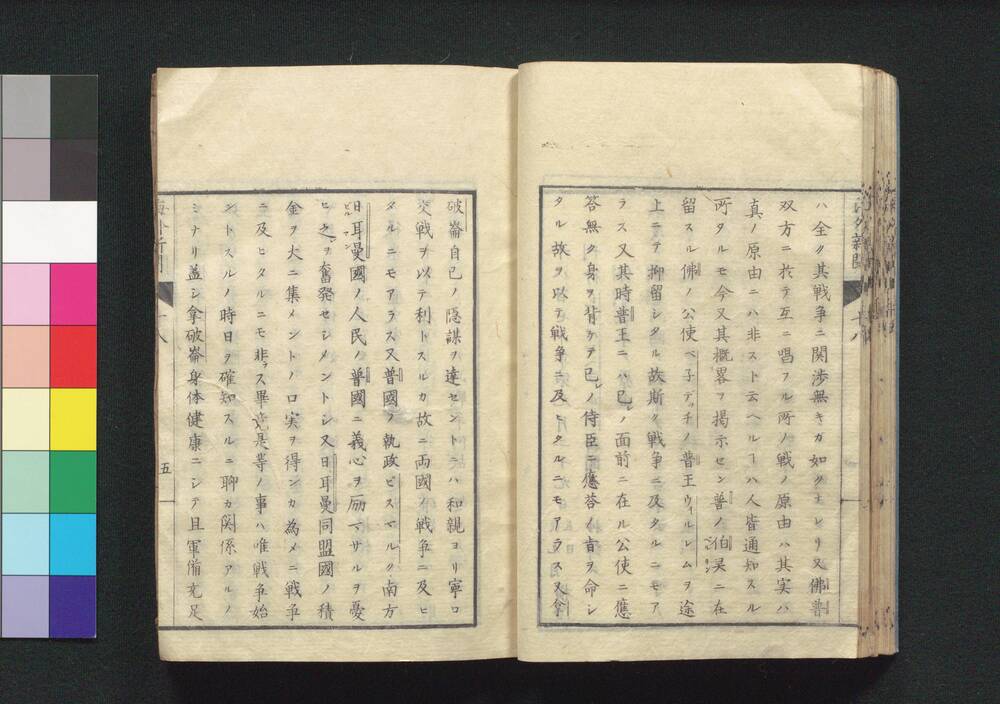 ハ全ク其戦争ニ関渉無キガ如ク主レリ又佛普
双方ニ於テ互ニ唱フル所ノ戦ノ原由ハ其実ハ
真ノ原由ニハ非スト云ヘルヿハ人皆通知スル
所タルモ今又其概畧ヲ掲示セン普ノ伯灵ニ在
留スル佛ノ公使ベ子デッチノ普王ウィルレムヲ途
上ニテ抑留シタル故斯ク戦争ニ及タルニモア
ラス又其時普王ニハ己レノ面前ニ在ル公使ニ應
答無ク身ヲ背ケテ己レノ侍臣ニ應答ノ旨ヲ命シ
タル故ヲ以テ戦争ニ及ヒタルニモアラス又拿
海外新聞
十八
破崙自己ノ隠謀ヲ達セントニハ和親ヨリ寧ロ
交戦ヲ以テ利トスルカ故ニ両國ノ戦争ニ及ヒ
タルニモアラス又普國ノ執政ビスマルク南方
日耳曼國ノ人民ノ普國ニ義心ヲ励マサルヲ憂
ヒ之ヲ奮発セシメントシ又日耳曼同盟國ノ積
金ヲ大ニ集メントノ口実ヲ得ンカ為メニ戦争
ニ及ヒタルニモ非ラス畢竟是等ノ事ハ唯戦争始
ントスルノ時日ヲ確知スルニ聊カ関係アルノ
ミナリ蓋シ拿破崙身体健康ニシテ且軍備充足
海外新聞
十八
五